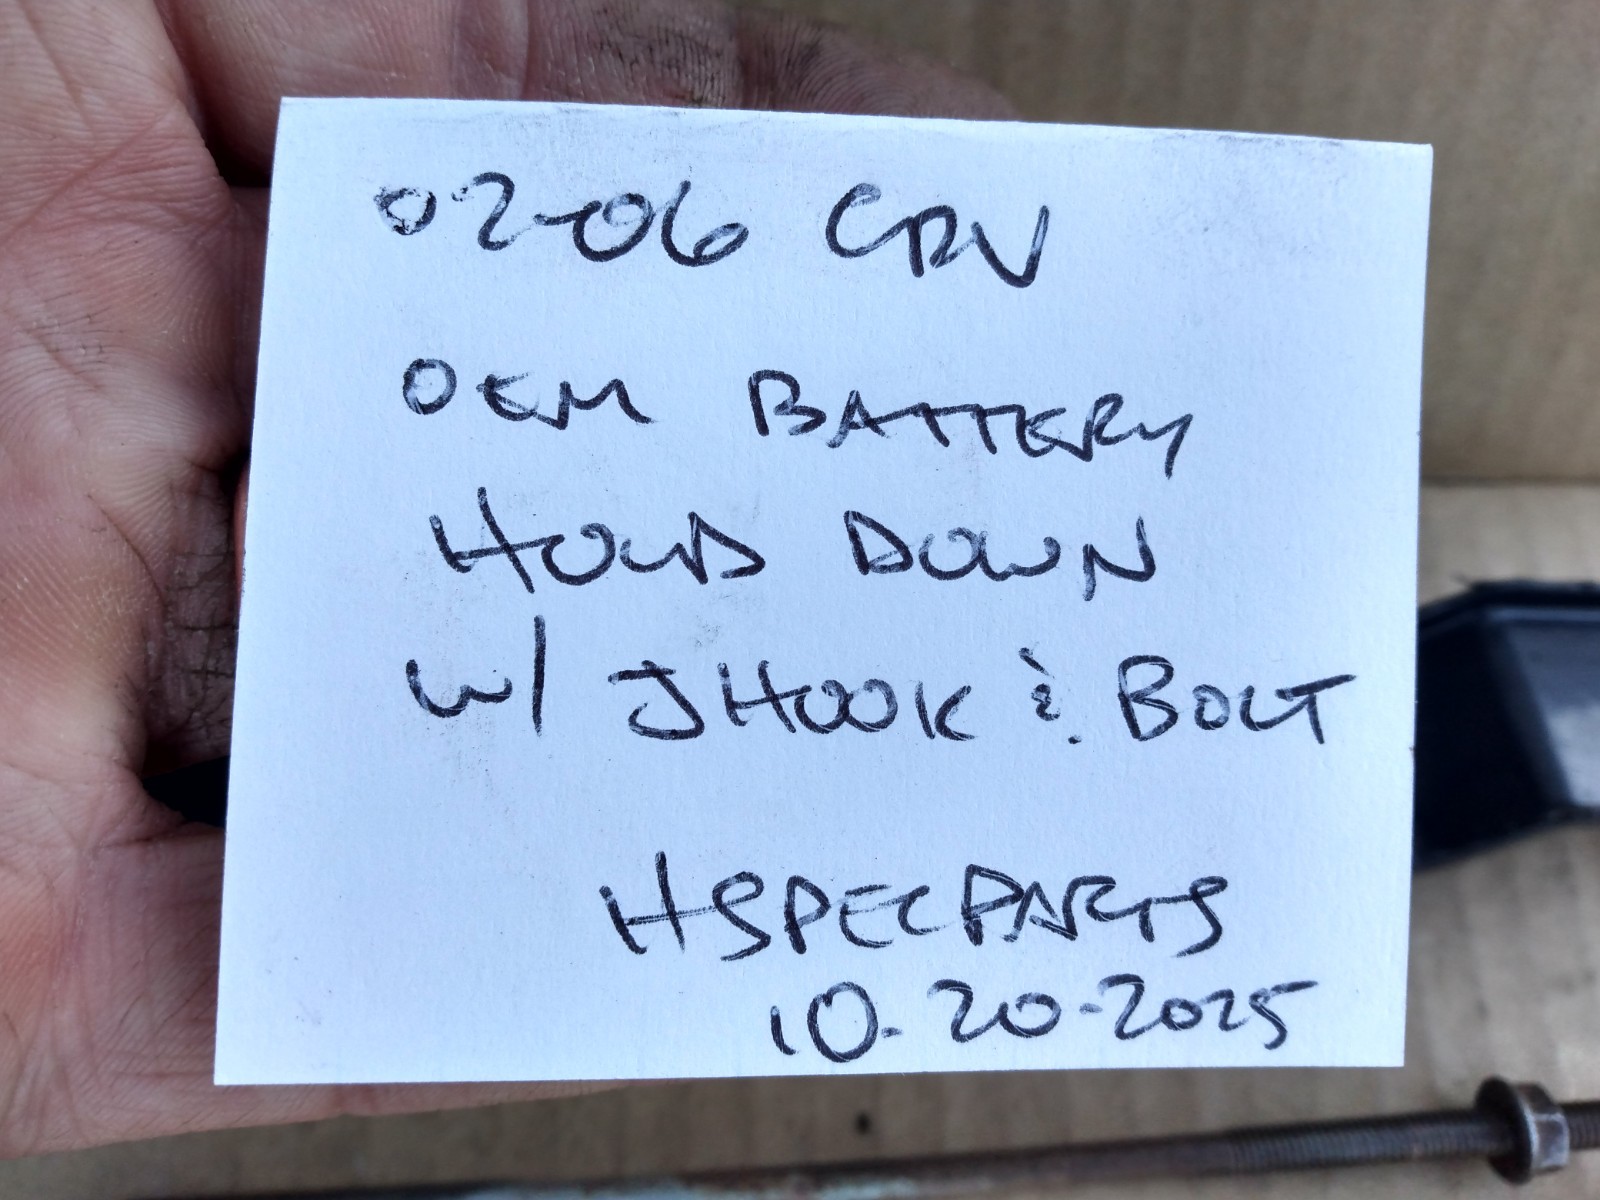 02-06 CRV
OEM BATTERY
HOLD DOWN
W/ J HOOK & BOLT
HSPECPARTS
10-20-2025